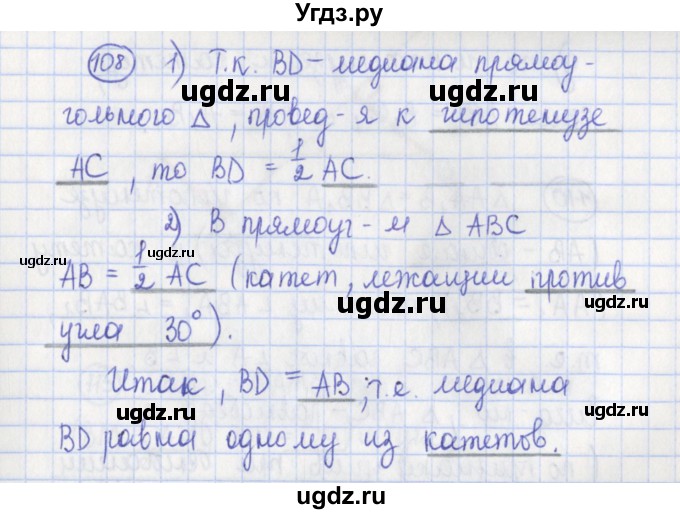 Угдз.ру
108 1) Т.к. BD – медиана прямоу-
ugdz.ru ugdz.ru
гольного Δ, провед-я к гипотенузе
AC, то BD = 1/2 AC.
ugdz.ru ugdz.ru
2) В прямоуг-м Δ ABC
ugdz.ru ugdz.ru ugdz.ru
AB = 1/2 AC (катет, лежащий против
угла 30°).
ugdz.ru ugdz.ru
Итак, BD = AB, т.е. медиана
ugdz.ru ugdz.ru ugdz.ru
BD равна одному из катетов.
ugdz.ru